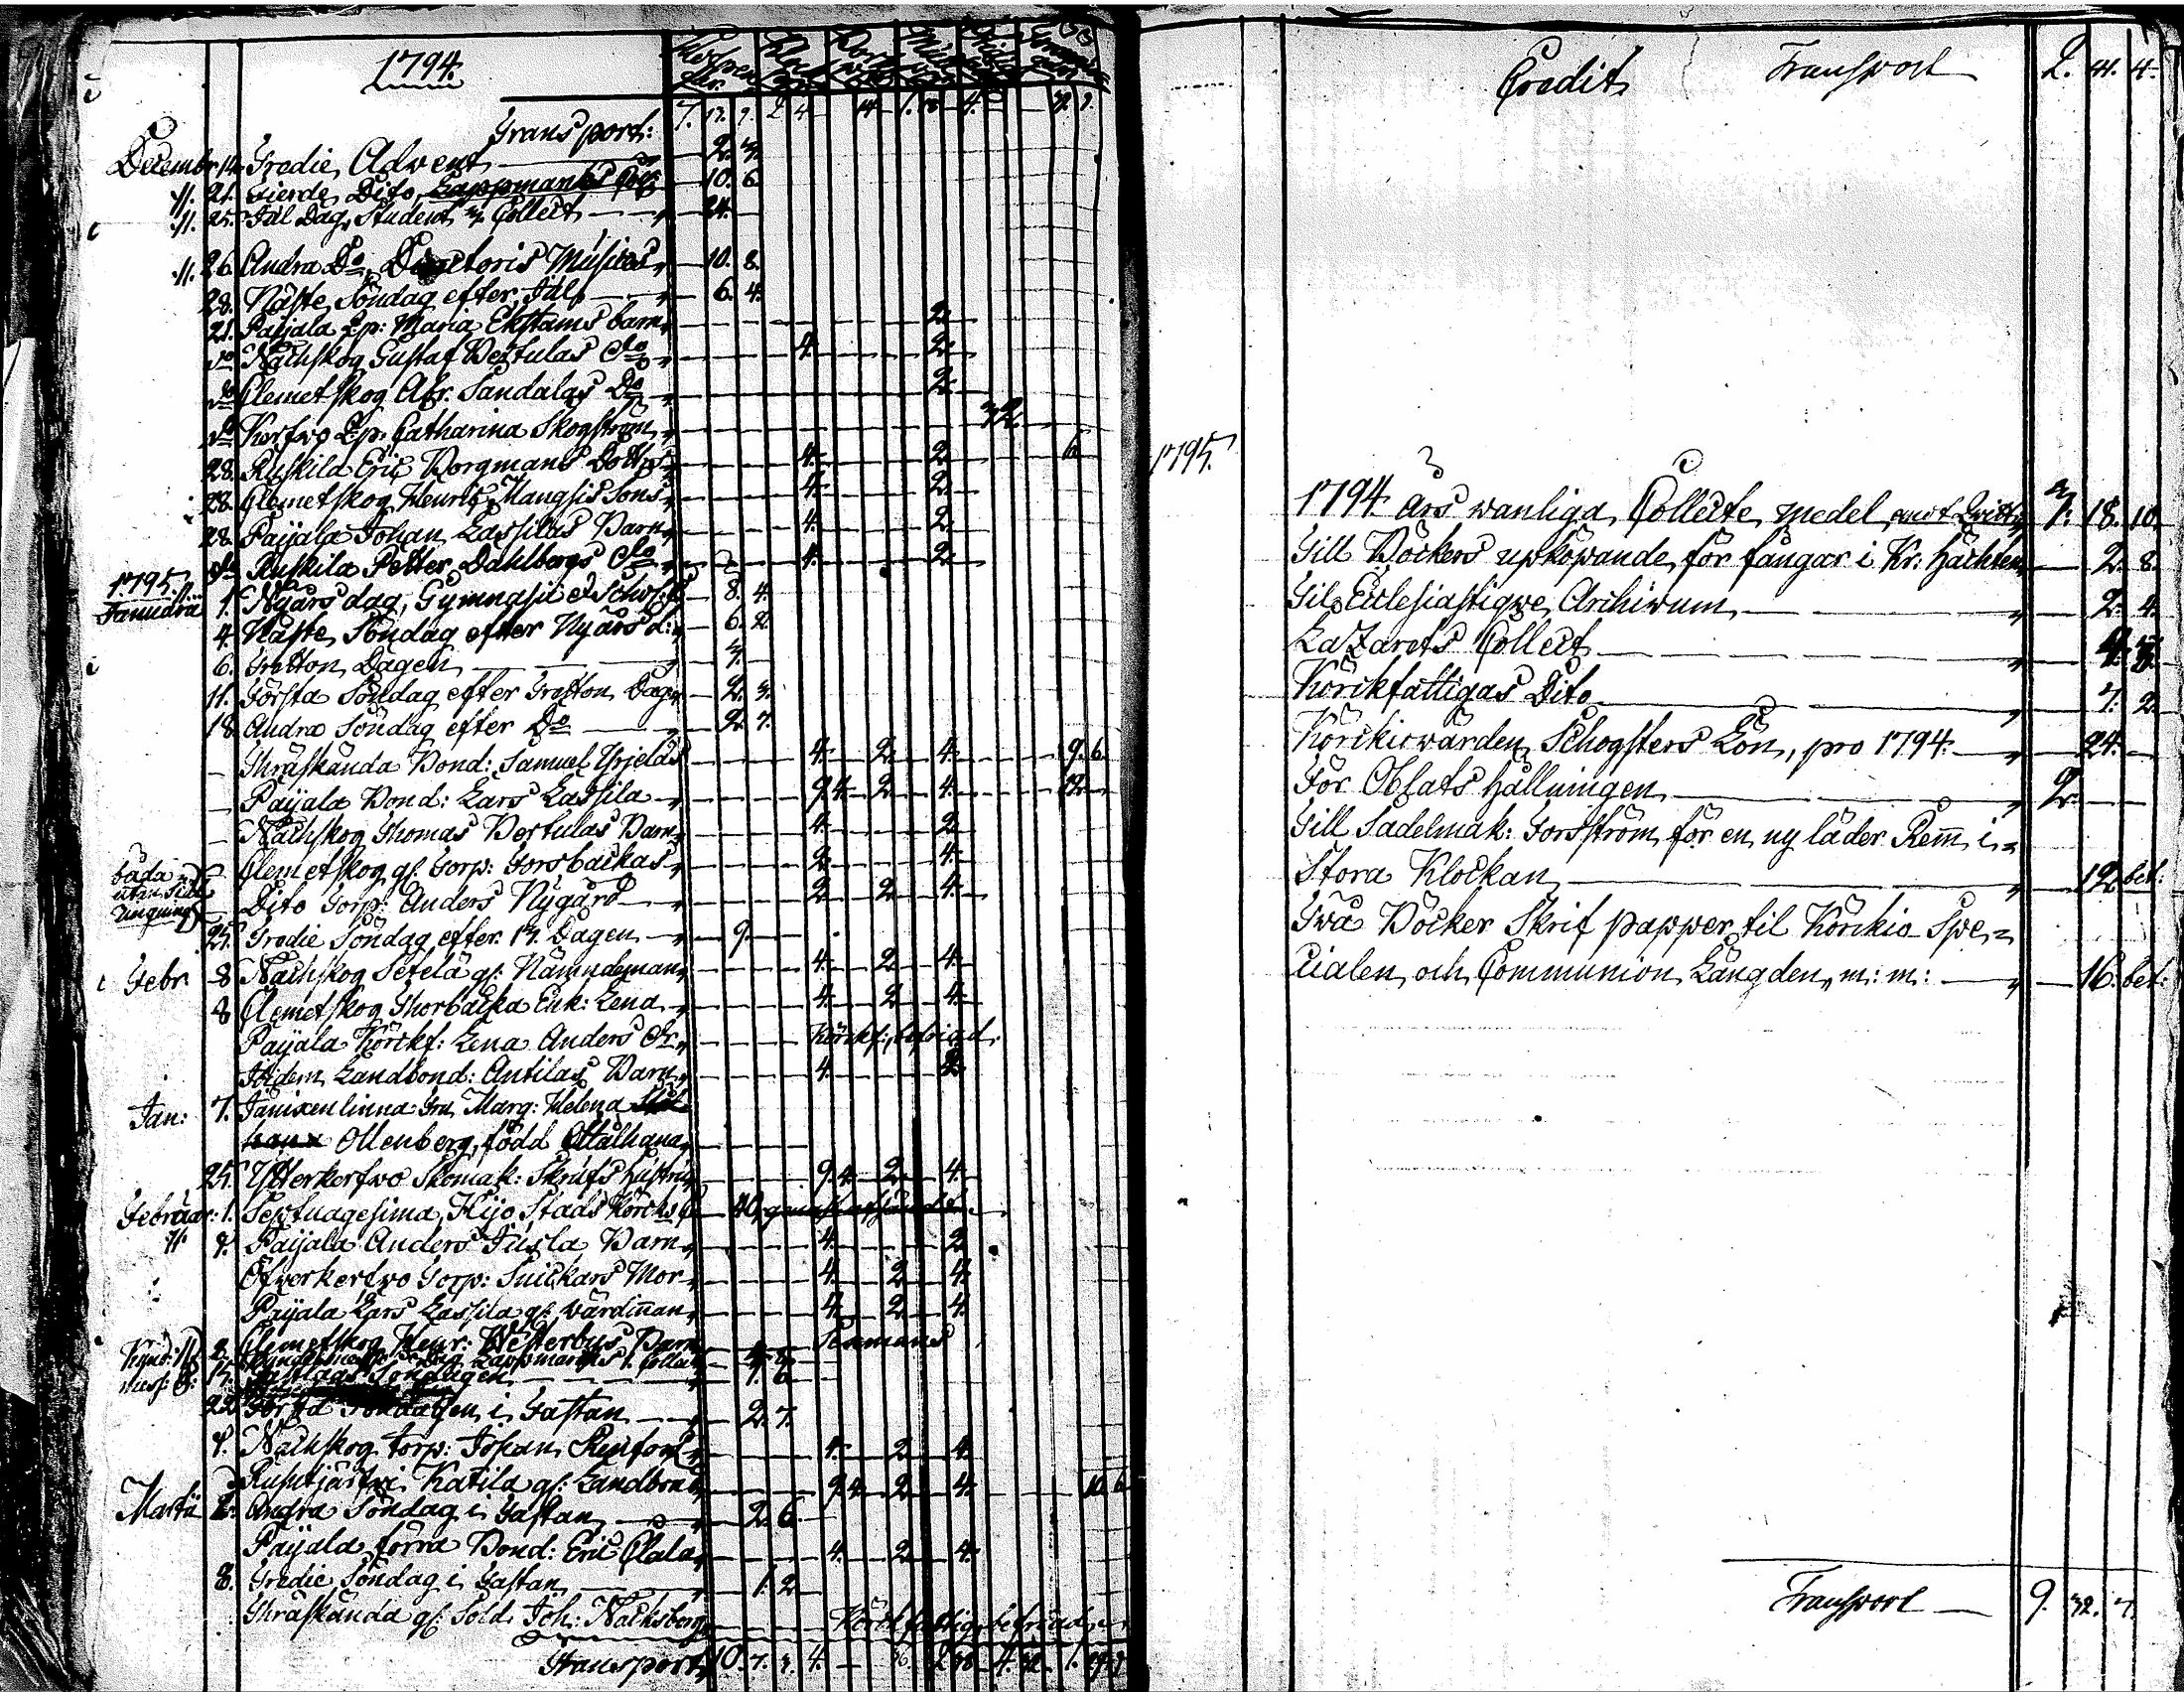 1794.
Transport: 7. 17. 9. 2. 4 — 14 — 1.
Decembr 14. Tredie Advent — 2. 7.
//. 21. Fierde Dito, Lappmarks Coll: — 10. 6.
//. 25. Jul Dag, Student Collect — 24. —
//. 26. Andra Do, Directoris Musices — 10. 8.
28. Näste Söndag efter Jul — 6. 4.
21. Paijala Maria Ekstams barn — 2.
do Nackskog Gustaf Pertulas do — 4. — 2.
do Clemetskog Afs: Sandalas Do — 2.
do Korfwo Catharina Skogström — 32.
28. Ruskila Eric Borgmans Dotter — 4. — 2. — 6
28. Clemetskog Henric Mangsis Sons — 4. — 2.
28. Paijala Johan Lassilas Barn — 4. — 2.
do Ruskila Petter Dahlbergs do — 4. — 2.
1795. //.
Januarii 1. Nyårs dag, Gymnasii et Schol: — 8. 4.
4. Näste Söndag efter Nyårs d: — 6. 2.
6. Tretton Dagen — 7. —
11. Första Söndag efter Tretton Dag — 2. 3.
18. Andra Söndag efter Do — 2. 7.
Thräskända Bond: Samuel Yrjelas — 4. — 2. — 4. — 9. 6.
Paijala Bond: Lars Lassila — 9. 4. — 2. — 4. — 12.
Nackskog Thomas Pertulas Barn — 4. — 2.
båda utan
Ringning
Clemetskog gl. Torp: Torsbackas — 2. — 4.
Dito Torp: Anders Nygård — 2. — 2. — 4.
25. Tredie Söndag efter 13. Dagen — 9. —
Febr 8 Nackskog Setelä gl: Nämndeman — 4. — 2. — 4.
8 Clemetskog Thorbacka Enk: Lena — 4. — 2. — 4.
Paijala Körckf: Lena Anders Dr — Körckf: befriad.
Ibidem Landbond: Antilas Barn — 4. — 2.
Jan: 7. Jänixenlinna Fru Marg: Helena
Ollenberg, född Ottalhana —
25. Ytterkorfwo Skomak: Skrufs hustru — 9. 4. — 2. — 4.
Februar: 1. Septuagesima, Hijo Stads Körcks — 10.
//. 9. Paijala Anders Jusla Barn — 4. — 2.
Öfwerkorfwo Torp: Snickars Mor — 4. — 2. — 4.
Paijala Lars Lassila gl. wärdinnan — 4. — 2. — 4.
Clemetskog Henr: Westerbys Barn —
Kynd: 2. Kyndelsmesso Dag Lappmarks Collect
mess: 15. Fastlags Söndagen — 1. 6.
22. Första Söndagen i Fastan — 2. 7.
4. Nackskog torp: Johan Renfors — 4. — 2. — 4.
Ruhtjärfwi Katila gl: Landbond — 9. 4. — 2. — 4. — 10. 6
Martii 1. Andra Söndag i Fastan — 2. 6.
Paijala förra Bond: Eric Clala — 4. — 2. — 4.
8. Tredie Söndag i Fastan — 1. 2.
Thräskända gl: Sold. Joh: Nacksberg — Körckfattig, befriad
Transport 10. 7. 3. 4. — 36. 2. 38. 4. 32. 1.
Credit Transport 2. 41. 4.
1795.
1794 års wanliga Collecte medel emot Qvitt: 7. 18. 10.
Till Böckers upköpande för fångar i Kr: Häckten — 2. 8.
Til Ecclesiastiqve Archivum — 2. 4.
Lazarets Collect —
Körckfattigas Dito — 7. 2
Körckiowärden Schogsters Lön, pro 1794: — 24. —
För Oblats hållningen — 2. —
Till Sadelmak: Forsström för en ny läder Rem i
Stora Klockan — 12. bet:
Två Böcker Skrif papper til Körckio Spe=
cialen och Communion Längden, m: m: — 16. bet:
Transport — 9. 32. 7.